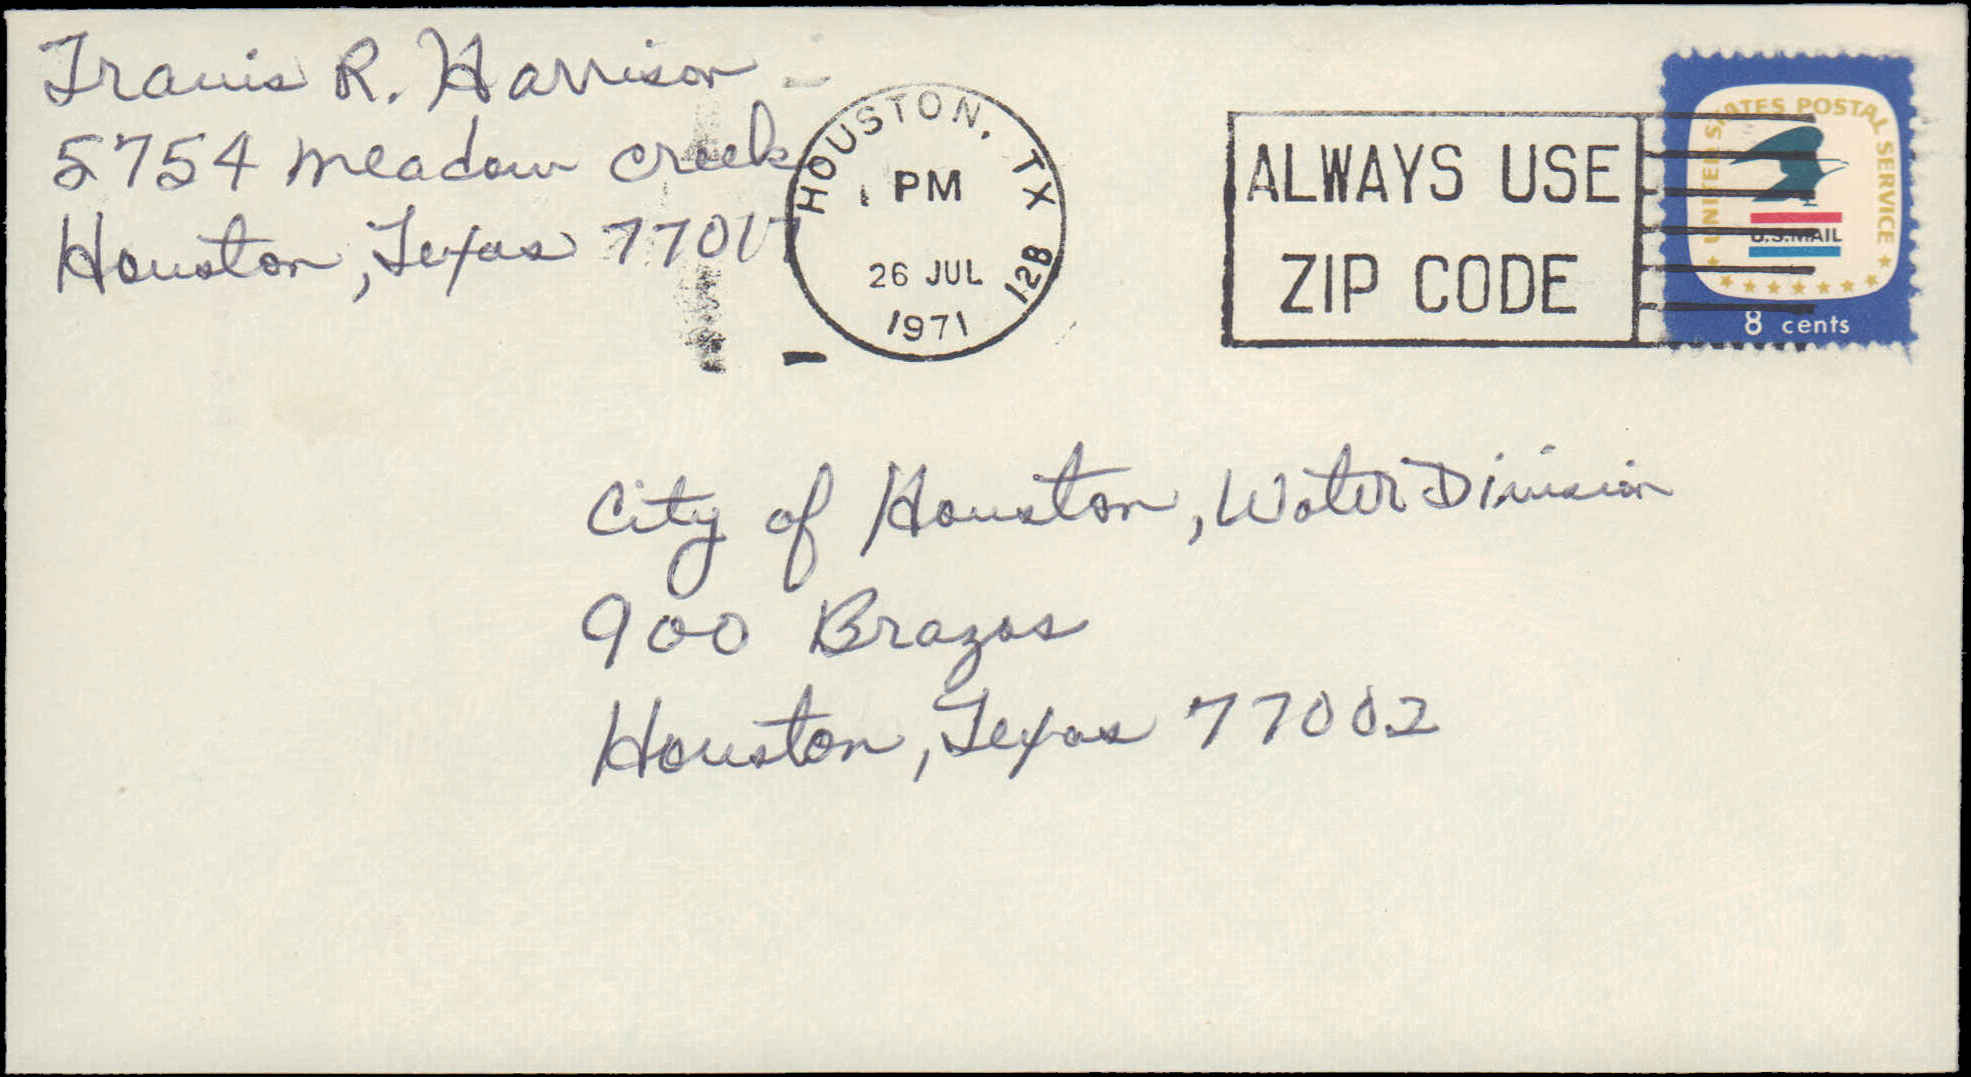 Travis R. Harrison
5754 Meadow Creek
Houston, Texas 77017
HOUSTON, TX
PM
26 JUL
1971
128
ALWAYS USE
ZIP CODE
UNITED STATES POSTAL SERVICE
U.S.MAIL
8 cents
City of Houston, Water Division
900 Brazos
Houston, Texas 77002